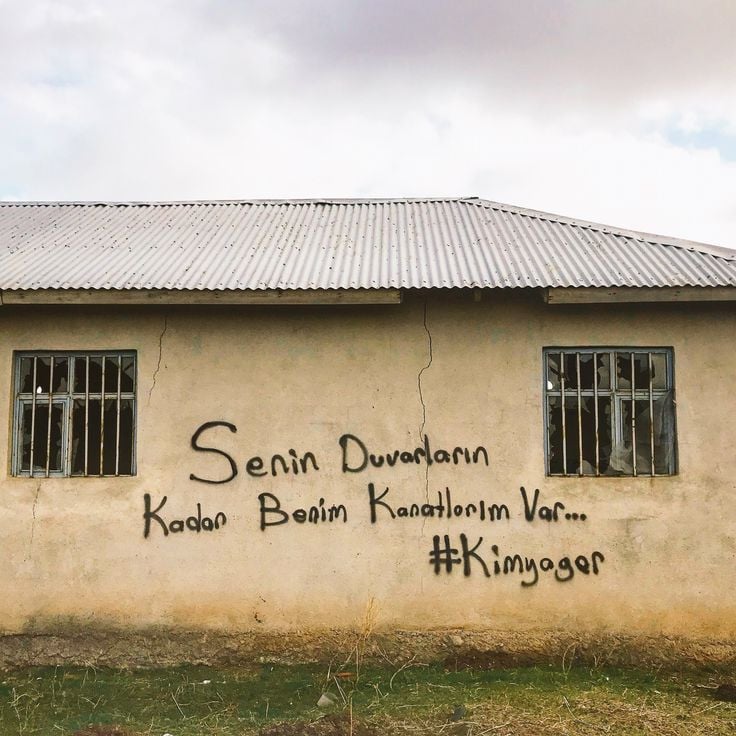 Senin Duvarların
Kadar Benim Kanatlarım Var...
#Kimyager